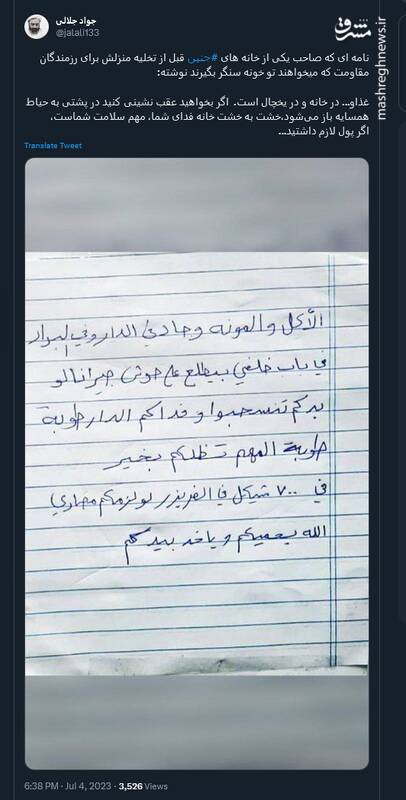 جواد جلالی
@jalali133
مشرق
mashreghnews.ir
نامه ای که صاحب یکی از خانه های #جنین قبل از تخلیه منزلش برای رزمندگان
مقاومت که میخواهند تو خونه سنگر بگیرند نوشته:
غذاو... در خانه و در یخچال است. اگر بخواهید عقب نشینی کنید در پشتی به حیاط
همسایه باز می‌شود،خشت به خشت خانه فدای شما، مهم سلامت شماست،
اگر پول لازم داشتید...
Translate Tweet
الأكل والمونه وحاد في الدار وفي البراد
في باب خلفي بيطلع ع حوش جيرانا لو
بدكم تنسحبوا وفداكم الدار طوبة
طوبة المهم تظلكم بخير
في ٧٠٠ شيكل في الفريزر لو لزمكم مصاري
الله يحميكم وياخد بيدكم
6:38 PM · Jul 4, 2023 · 3,526 Views